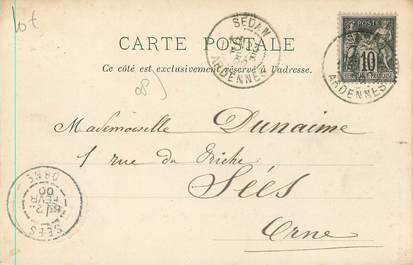 lot
SEDAN
ARDENNES
POSTE
10
ARDENNES
CARTE POSTALE
Ce côté est exclusivement réservé à l'adresse.
08)
Mademoiselle Dunaime
1 rue du Riche
Sées
Orne
SÉES
ORNE
FEVR
00